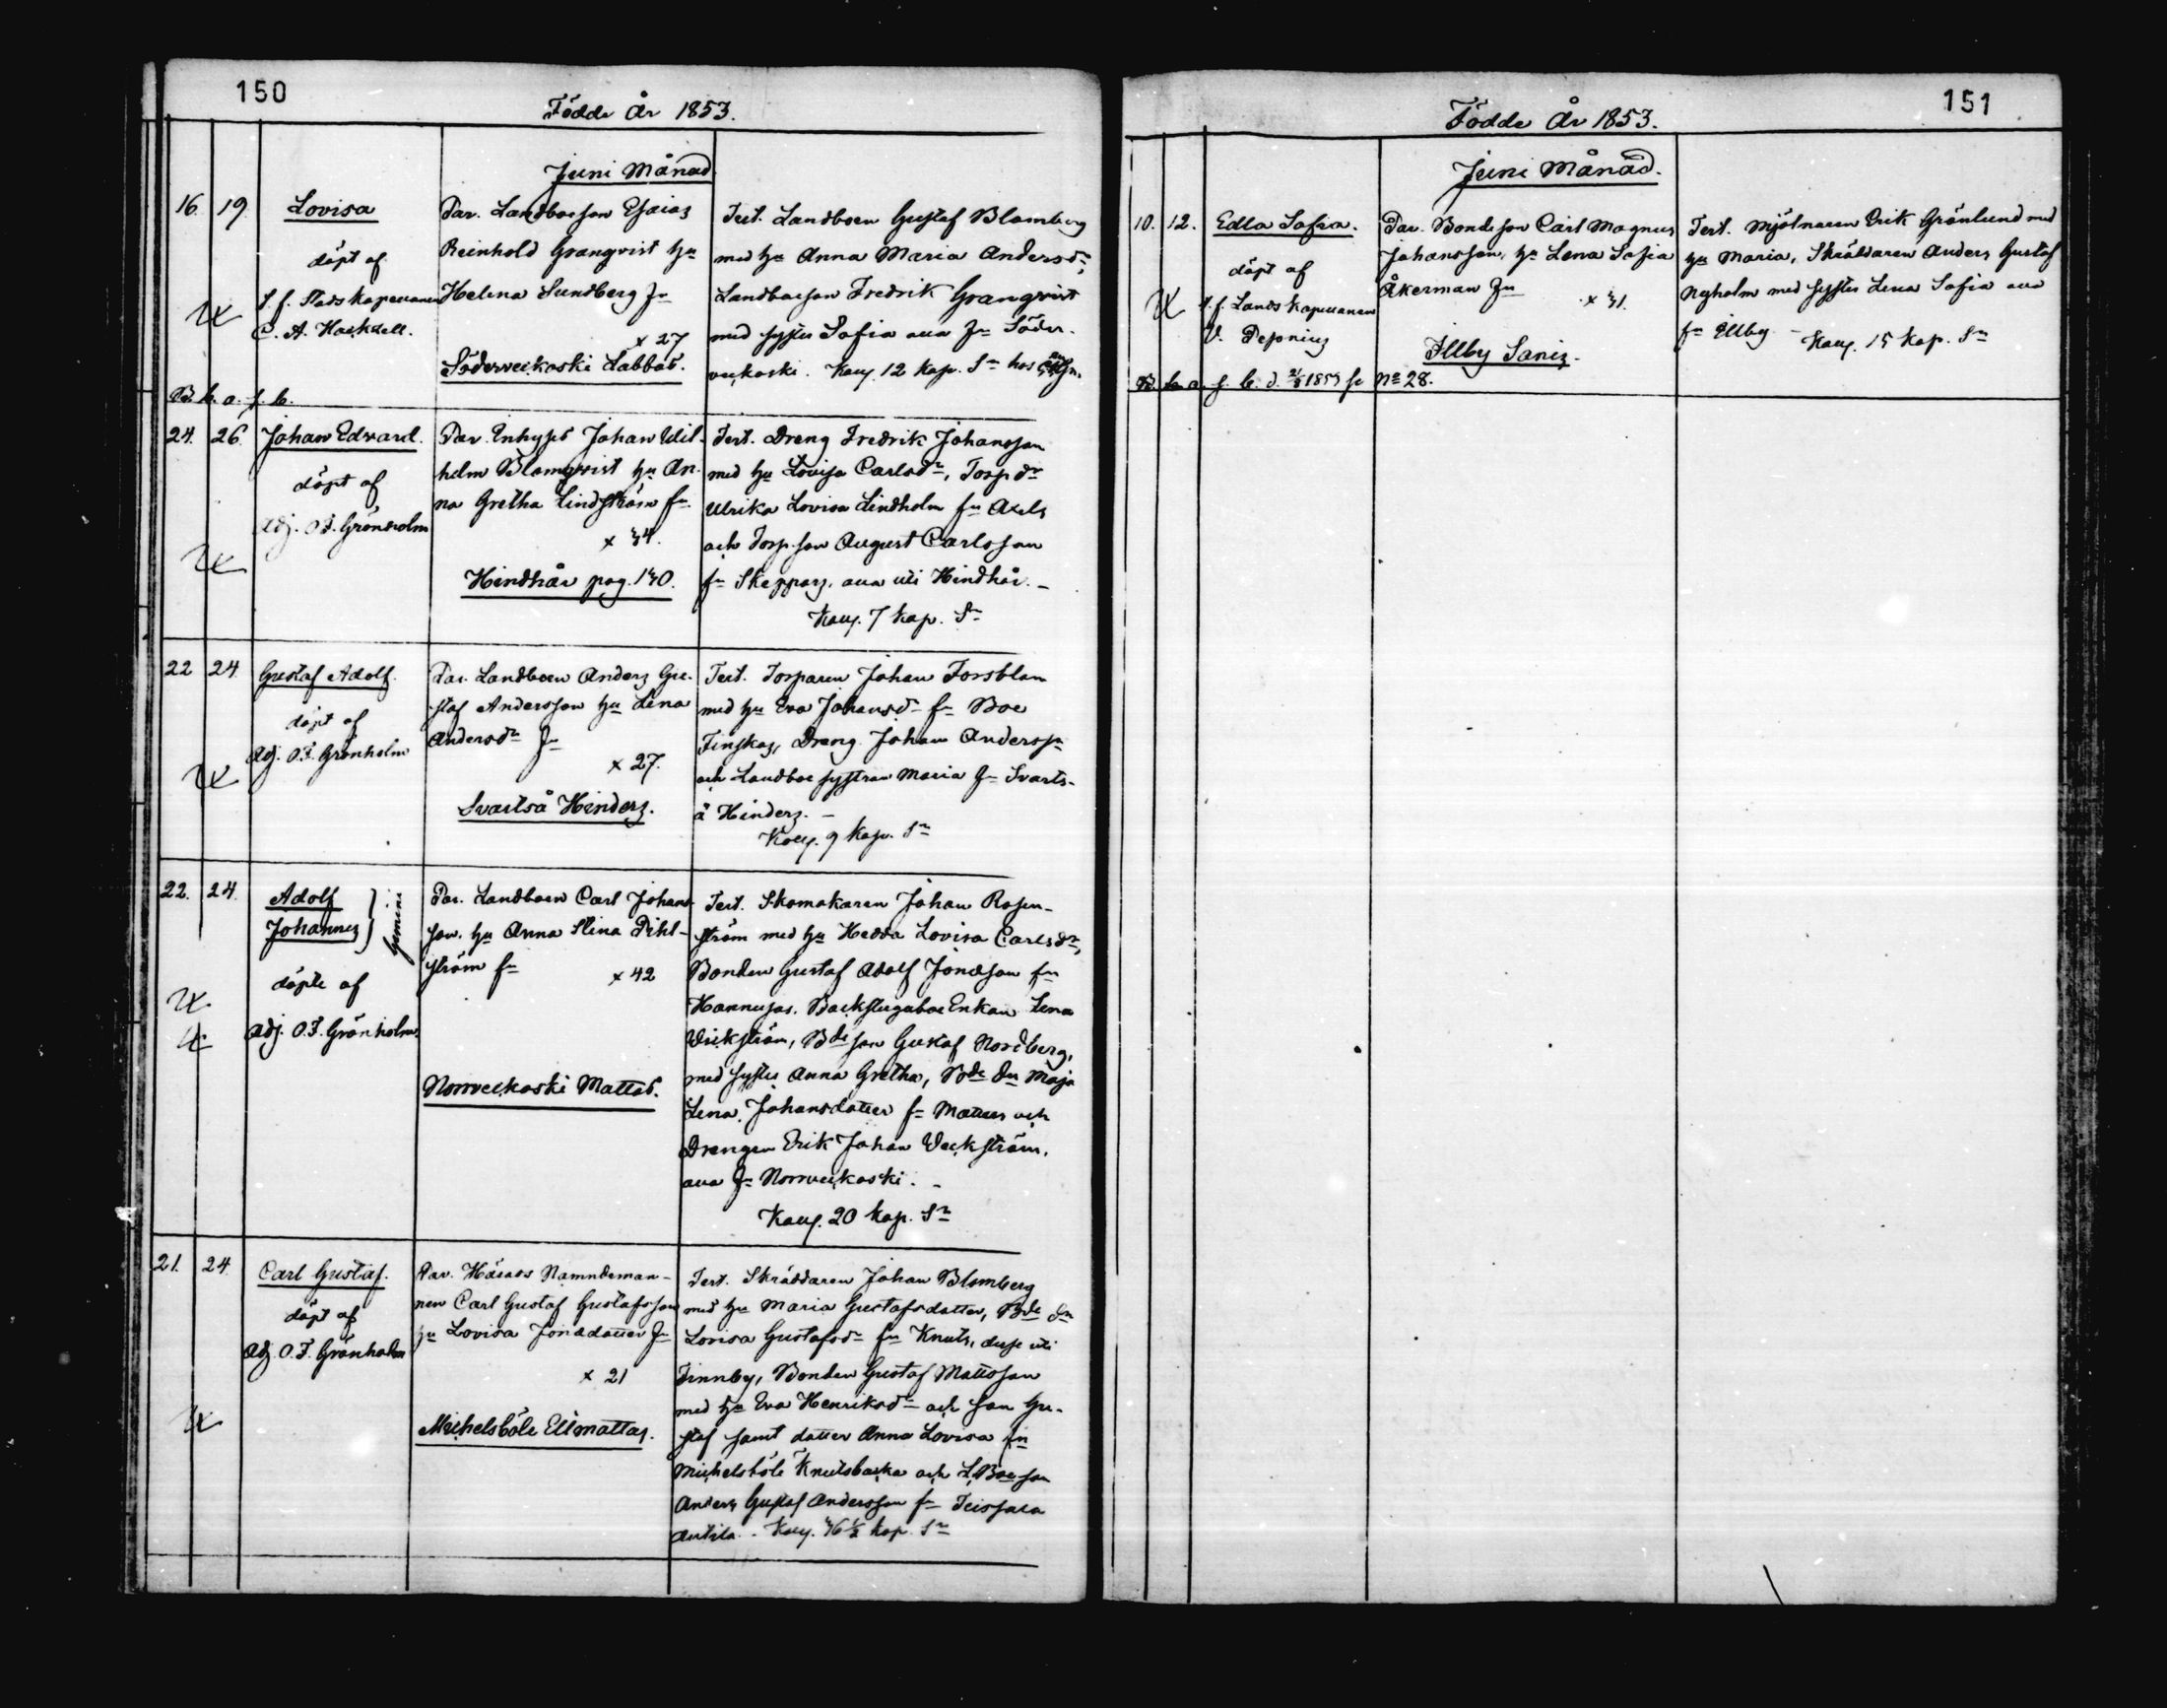 150
Födde År 1853.
Juni Månad
16. 19. Lovisa
döpt af
C. A.
Par. Landboeson Esaias
Reinhold Granqvist hu
Helena Sundberg fr
x 27
Söderveckoski Labbas.
Test. Landboen Gustaf Blomberg
med hu Anna Maria Andersdr,
Landboeson Fredrik Granqvist
med syster Sofia alla fr Söder-
veckoski. Koll. 12 kop. Sr hos
B. h. a. f. b.
24. 26. Johan Edvard.
döpt af
Adj. O. F. Grönholm
Par. Inhyses Johan Wil-
helm Blomqvist hu An-
na Gretha Lindström fr
x 34.
Hindhår pag. 130.
Test. Dreng Fredrik Johansson
med hu Lovisa Carlsdr, Torp dr
Ulrika Lovisa Lindholm fr Axels
och Torp.son August Carlsson
fr Skeppars, alla uti Hindhår. –
Koll. 7 kop. Sr
22 24. Gustaf Adolf.
döpt af
Adj. O. F. Grönholm
Par. Landboen Anders Gu-
staf Andersson hu Lena
Andersdr fr
x 27.
Svartså Hinders.
Test. Torparen Johan Forsblom
med hu Eva Johansdr fr Boe
Finskas, Dreng Johan Anderss.
och Landboe systran Maria fr Svarts-
å Hinders. –
Koll. 9 kop. Sr
22. 24. Adolf
Johannes } gemini
döpte af
Adj. O. F. Grönholm.
Par. Landboen Carl Johans-
son. hu Anna Stina Pihl-
ström fr
x 42
Norrveckoski Mattas.
Test. Skomakaren Johan Rosen-
ström med hu Hedda Lovisa Carlsdr,
Bonden Gustaf Adolf Jonasson fr
Hannusas. Backstugaboe Enkan Lena
Wickström, Bde son Gustaf Nordberg,
med syster Anna Gretha, Bde dr Maja
Lena Johansdatter fr Mattas och
Drengen Erik Johan Weckström.
alla fr Norrveckoski. –
Koll. 20 kop. Sr
21. 24. Carl Gustaf.
döpt af
Adj. O. F. Grönholm
Par. Härads Namndeman-
nen Carl Gustaf Gustafsson
hu Lovisa Jonadatter fr
x 21
Michelsböle Ellmattas.
Test. Skräddaren Johan Blomberg
med hu Maria Gustafsdatter, Bde dr
Lovisa Gustafsdr fr Knuts, desse uti
Finnby, Bonden Gustaf Mattsson
med hu Eva Henriksdr och son Gu-
staf samt datter Anna Lovisa fr
Michelsböle Knutsbacka och L.Boeson
Anders Gustaf Andersson fr
Antila. – Koll. 36½ kop. Sr
151
Födde År 1853.
Juni Månad.
10. 12. Edla Sofia.
döpt af
t.f. Lands Kapellanen
Par. Bondeson Carl Magnus
Johansson, hu Lena Sofia
Åkerman fr
x 31.
Illby Sanis.
Test. Mjölnaren Erik Grönlund med
hu Maria, Skräddaren Anders Gustaf
Nyholm med syster Lena Sofia alla
fr Illby – Koll. 15 kop. Sr
B. h. a. f. b. d. 21/8 1859 se No 28.